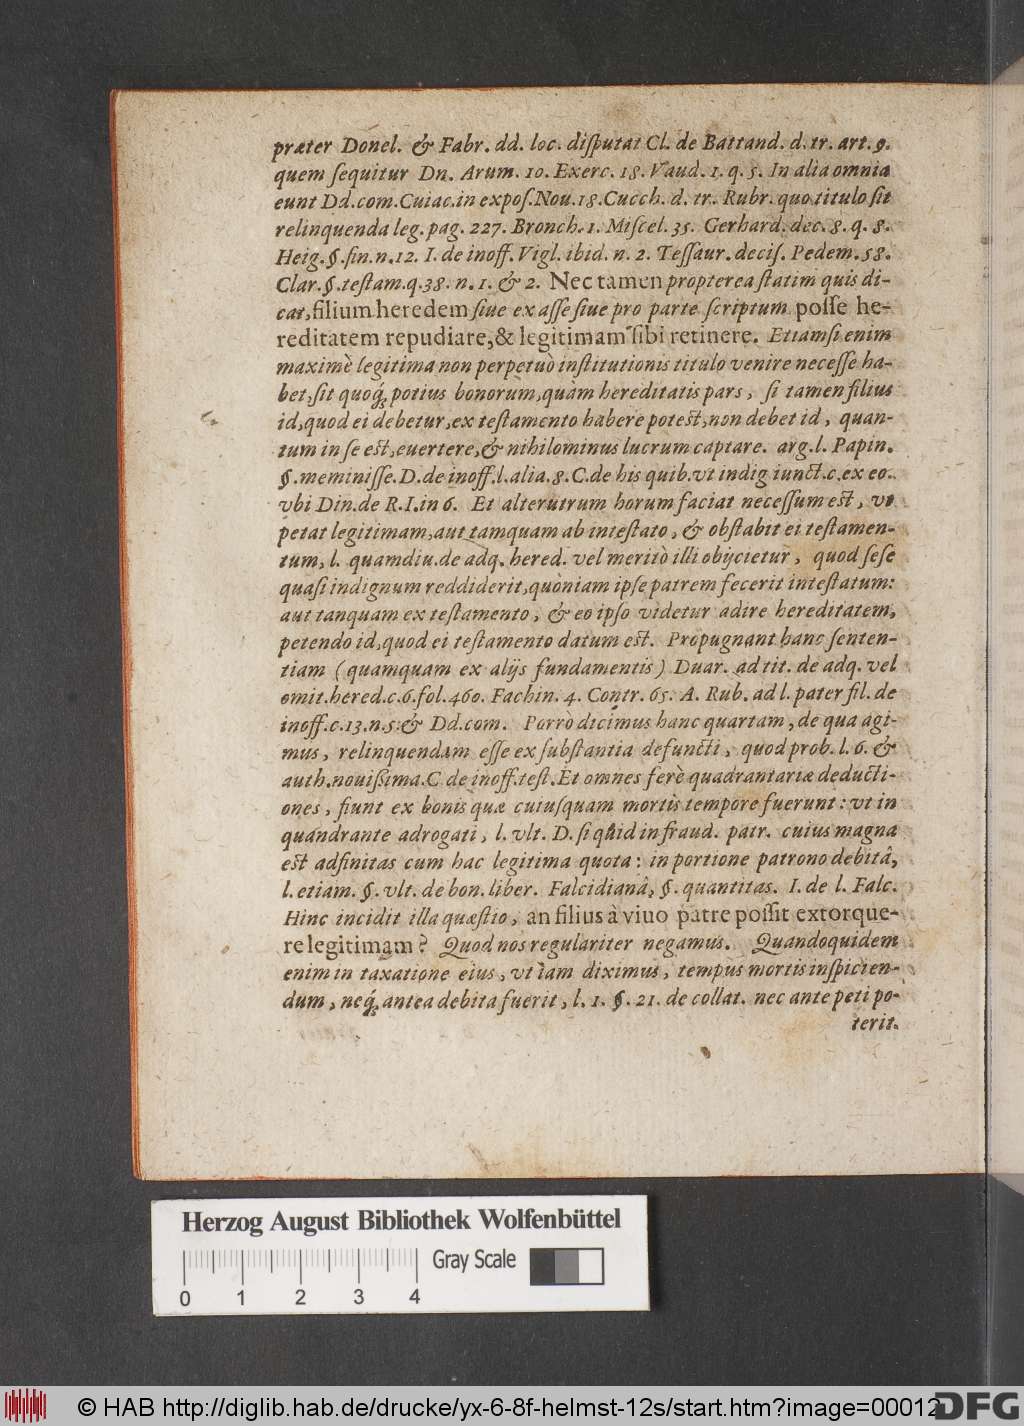 præter Donel. & Fabr. dd. loc. diſputat Cl. de Battand. d. tr. art. 9.
quem ſequitur Dn. Arum. 10. Exerc. 18. Vaud. 1. q. 5. In alia omnia
eunt Dd. com. Cuiac. in expoſ. Nou. 18. Cucch. d. tr. Rubr. quo titulo ſit
relinquenda leg. pag. 227. Bronch. 1. Miſcel. 35. Gerhard. dec. 8. q. 8.
Heig. §. fin. n. 12. I. de inoff. Vigl. ibid. n. 2. Teſſaur. deciſ. Pedem. 58.
Clar. §. teſtam. q. 38. n. 1. & 2. Nec tamen propterea ſtatim quis di-
cat, filium heredem ſiue ex aſſe ſiue pro parte ſcriptum poſſe he-
reditatem repudiare, & legitimam ſibi retinere. Etiamſi enim
maximè legitima non perpetuò inſtitutionis titulo venire neceſſe ha-
bet, ſit quoq́; potius bonorum, quàm hereditatis pars, ſi tamen filius
id, quod ei debetur, ex teſtamento habere poteſt, non debet id, quan-
tum in ſe eſt, euertere, & nihilominus lucrum captare. arg. l. Papin.
§. meminiſſe. D. de inoff. l. alia. 8. C. de his quib. vt indig iunct. c. ex eo.
vbi Din. de R. I. in 6. Et alterutrum horum faciat neceſſum eſt, vt
petat legitimam, aut tamquam ab inteſtato, & obſtabit ei teſtamen-
tum, l. quamdiu. de adq. hered. vel meritò illi obijcietur, quod ſeſe
quaſi indignum reddiderit, quoniam ipſe patrem fecerit inteſtatum:
aut tanquam ex teſtamento, & eo ipſo videtur adire hereditatem,
petendo id, quod ei teſtamento datum eſt. Propugnant hanc ſenten-
tiam (quamquam ex alijs fundamentis) Duar. ad tit. de adq. vel
omit. hered. c. 6. fol. 460. Fachin. 4. Contr. 65. A. Rub. ad l. pater fil. de
inoff. c. 13. n. 5. & Dd. com. Porrò dicimus hanc quartam, de qua agi-
mus, relinquendam eſſe ex ſubſtantia defuncti, quod prob. l. 6. &
auth. nouiſsima. C de inoff. teſt. Et omnes ferè quadrantariæ deducti-
ones, fiunt ex bonis quæ cuiuſquam mortis tempore fuerunt: vt in
quandrante adrogati, l. vlt. D. ſi quid in fraud. patr. cuius magna
eſt adfinitas cum hac legitima quota: in portione patrono debitâ,
l. etiam. §. vlt. de bon. liber. Falcidianâ, §. quantitas. I. de l. Falc.
Hinc incidit illa quæſtio, an filius à viuo patre poſſit extorque-
re legitimam? Quod nos regulariter negamus. Quandoquidem
enim in taxatione eius, vt iam diximus, tempus mortis inſpicien-
dum, neq́; antea debita fuerit, l. 1. §. 21. de collat. nec ante peti po-
terit.
Herzog August Bibliothek Wolfenbüttel
Gray Scale
0 1 2 3 4
© HAB http://diglib.hab.de/drucke/yx-6-8f-helmst-12s/start.htm?image=00012
DFG